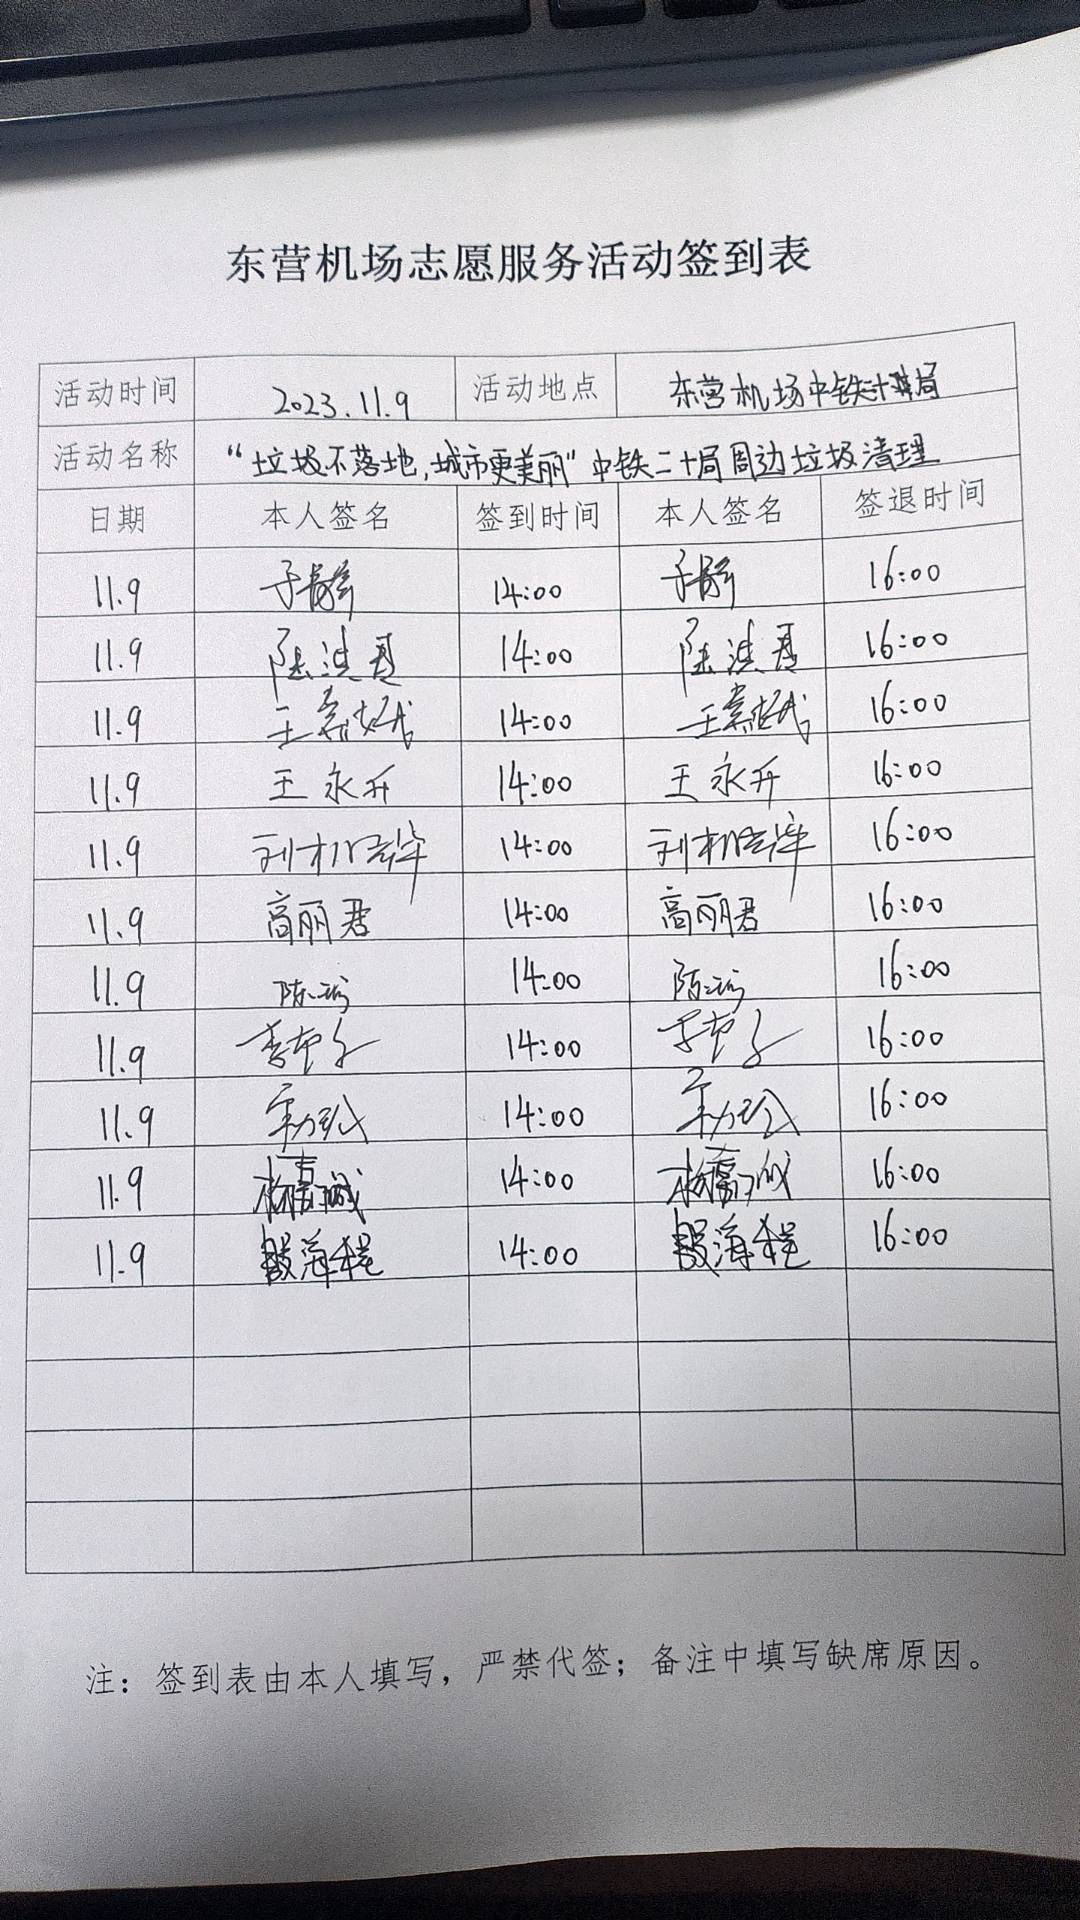 东营机场志愿服务活动签到表
活动时间 2023.11.9 活动地点 东营机场中铁二十局
活动名称 “垃圾不落地,城市更美丽”中铁二十局周边垃圾清理
日期 本人签名 签到时间 本人签名 签退时间
11.9 14:00 16:00
11.9 14:00 16:00
11.9 王 14:00 王 16:00
11.9 王永升 14:00 王永升 16:00
11.9 14:00 16:00
11.9 高丽君 14:00 高丽君 16:00
11.9 14:00 16:00
11.9 14:00 16:00
11.9 14:00 16:00
11.9 14:00 16:00
11.9 殷海程 14:00 殷海程 16:00
注：签到表由本人填写，严禁代签；备注中填写缺席原因。